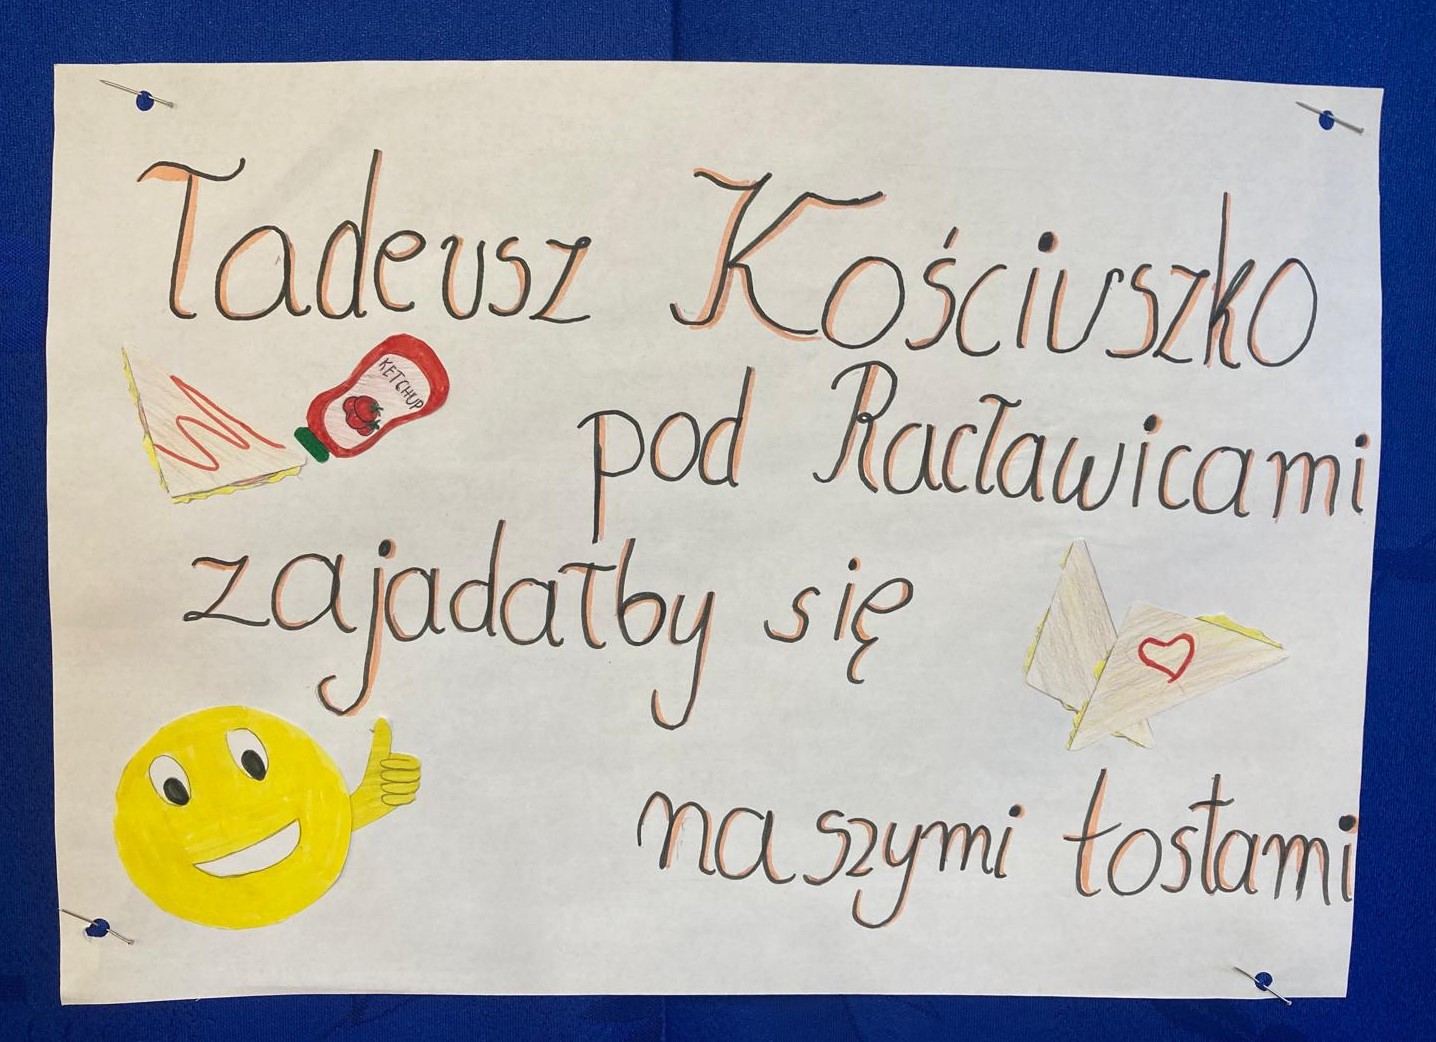 Tadeusz Kościuszko
KETCHUP
pod Racławicami
zajadałby się
naszymi tostami